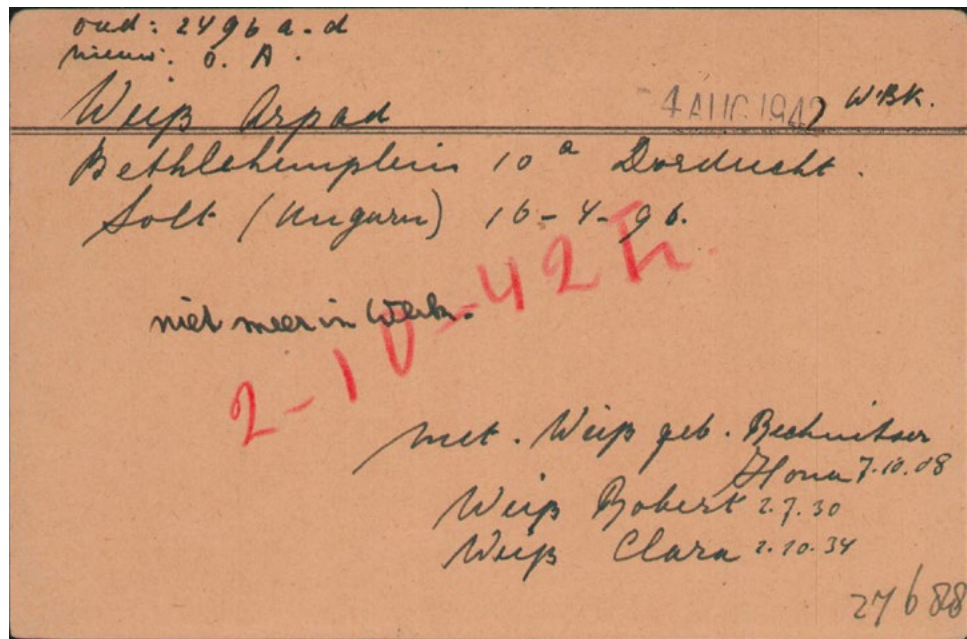 oud: 2496 a.d
nieuw: O. A.
Weiß Arpad
4 AUG 1942 W'BK.
Bethlehemplein 10 a Dordrecht.
Solt (Ungarn) 16-4-96.
2-10-42
niet meer in Werk.
met. Weiß geb. Rechnitser
Ilona 7.10.08
Weiß Robert 2.7.30
Weiß Clara 2.10.34
27688